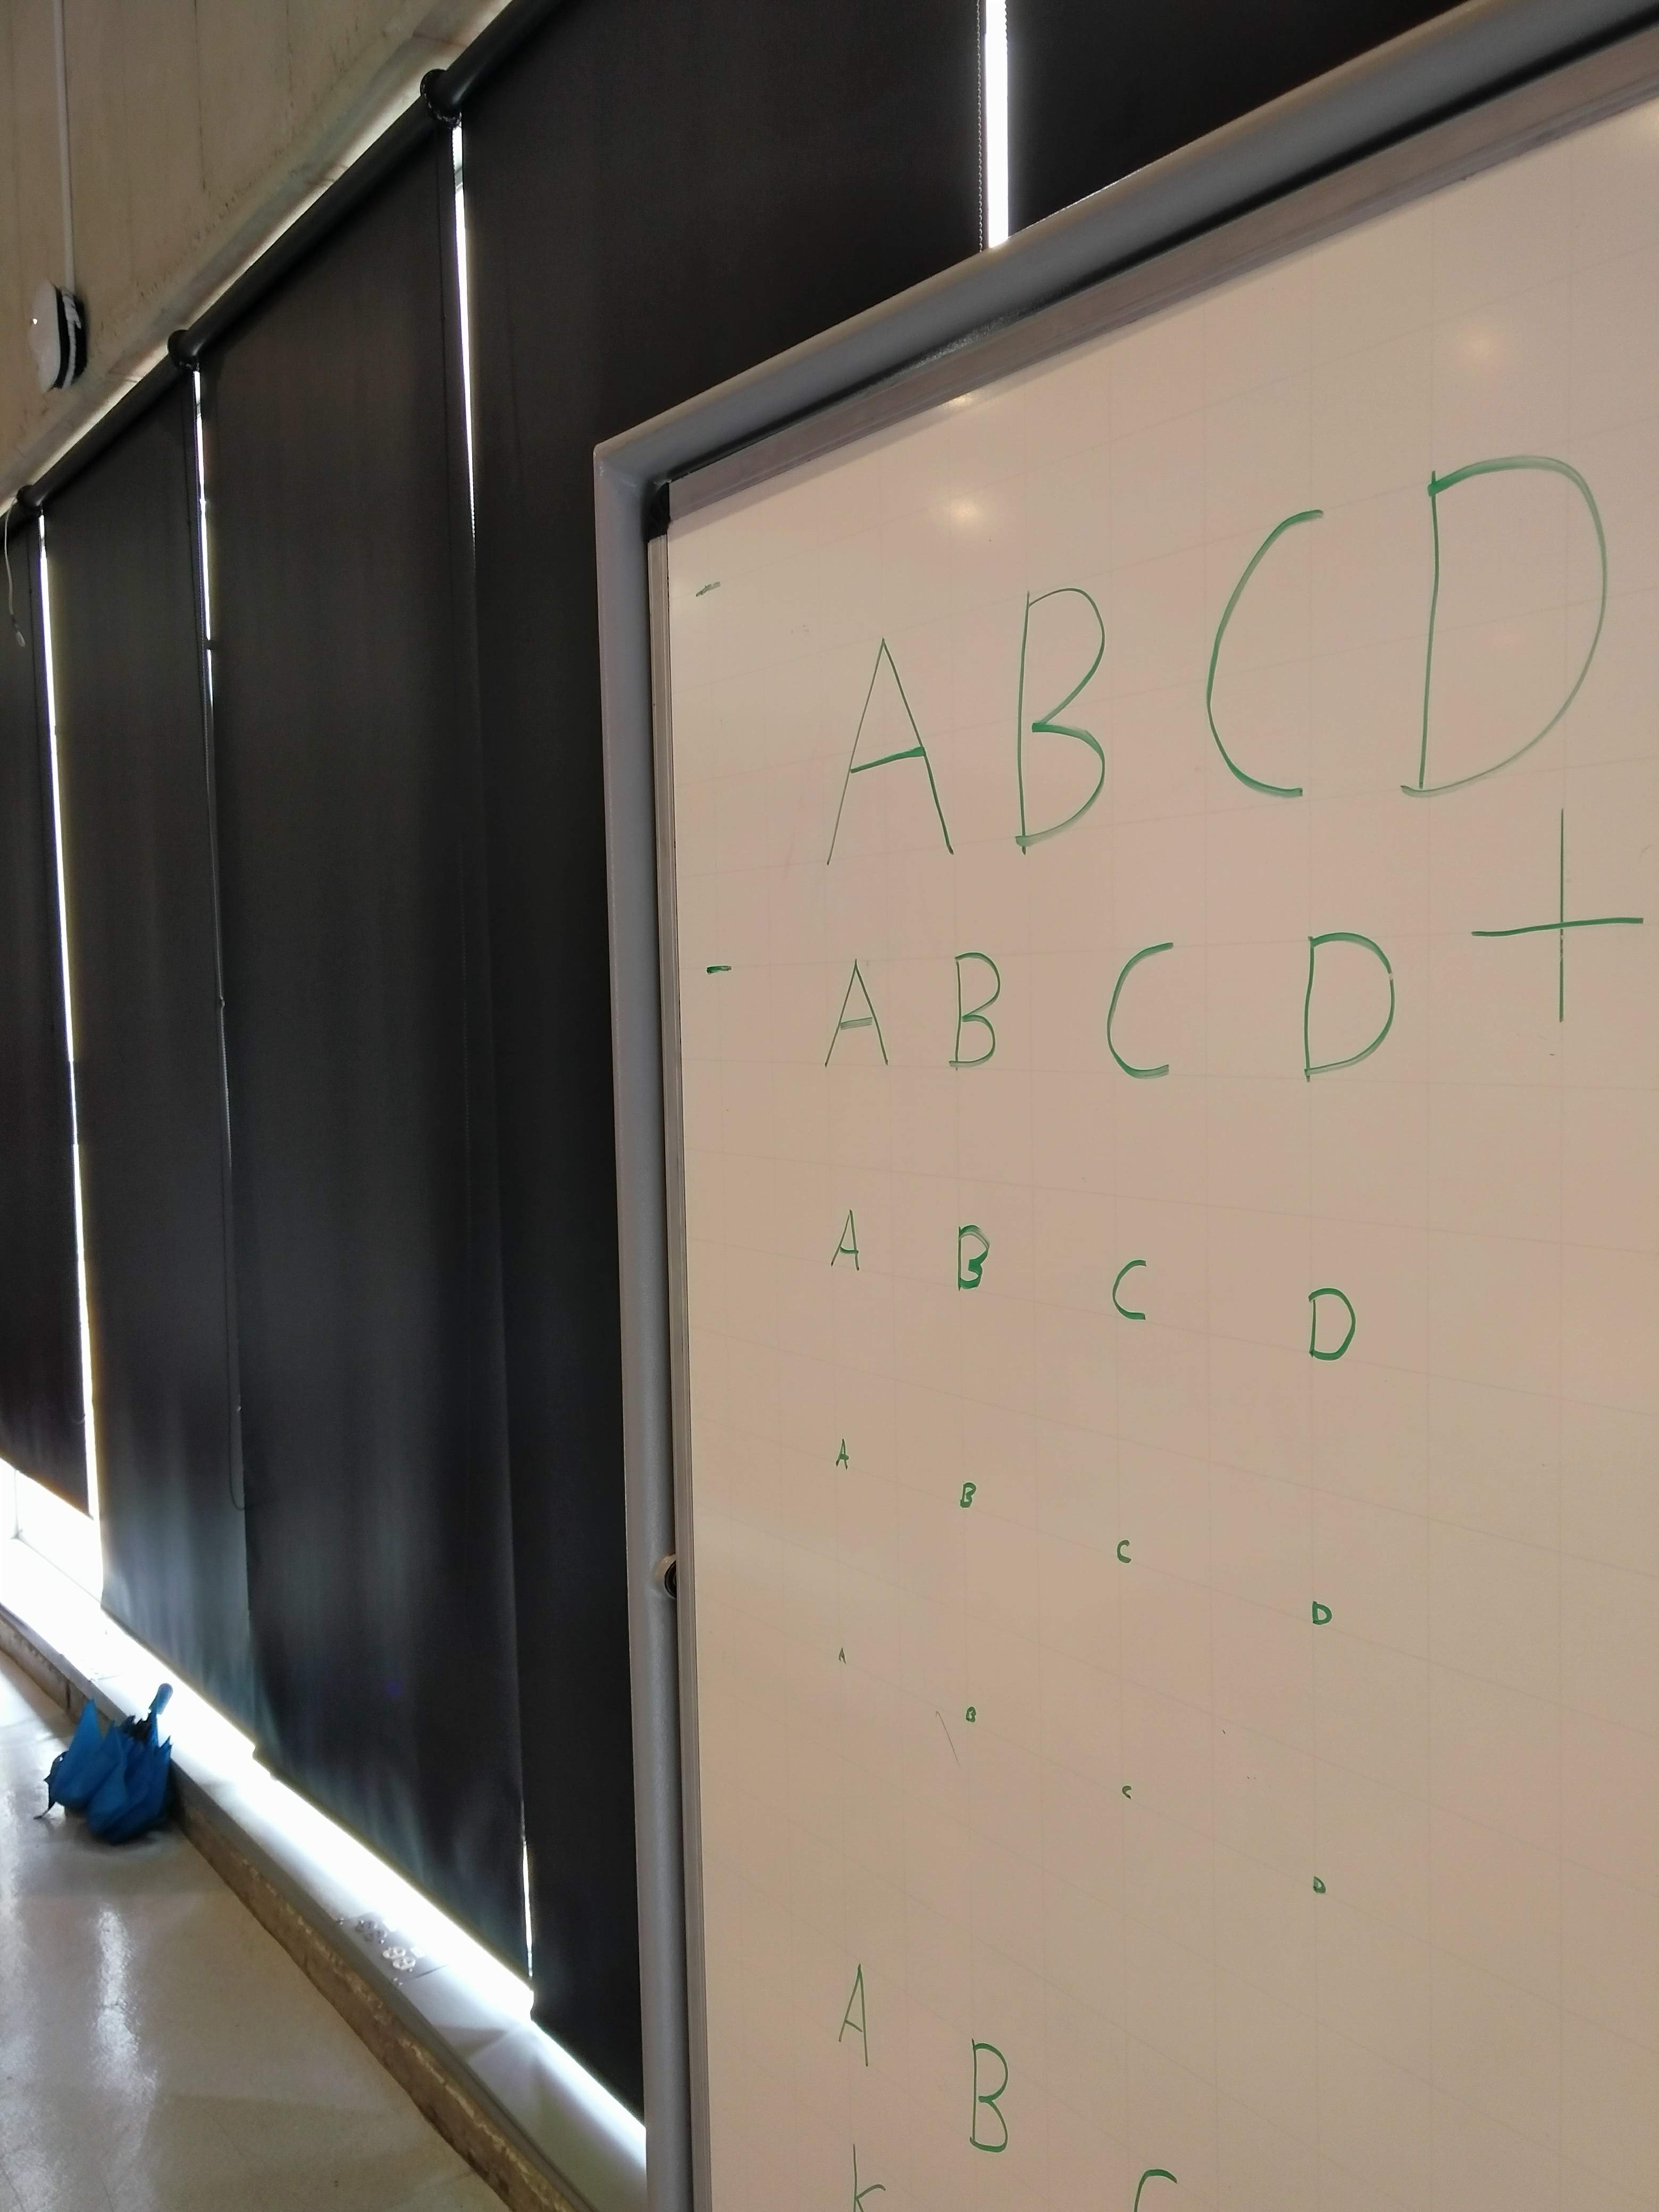 - A B C D
- A B C D +
A B C D
A B C D
A B C D
A B C
K